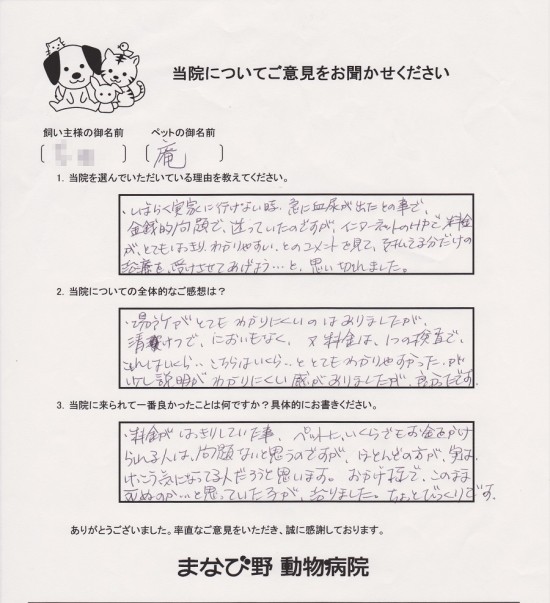 当院についてご意見をお聞かせください
飼い主様の御名前 ペットの御名前
庵
1. 当院を選んでいただいている理由を教えてください。
・しばらく実家に行けない時、急に血尿が出たとの事で、
金銭的問題で、迷っていたのですが、インターネットのHPで料金
が、とてもはっきりわかりやすい、とのコメントを見て、を払える分だけの
診療を、受けさせてあげよう…と、思い切れました。
2. 当院についての全体的なご感想は?
・場所がとてもわかりにくいのはありましたが、
清潔で、においもなく、又料金は、1つの検査で、
これはいくら‥こちらはいくら‥ととてもわかりやすかった。が
少し説明がわかりにくい感がありましたが、良かったです。
3. 当院に来られて一番良かったことは何ですか?具体的にお書きください。
・料金がはっきりしていた事、ペットに、いくらでもお金をかけ
られる人は、問題ないと思うのですが、ほとんどの方が、実は、
けっこう気になってる人だろうと思います。おかげ様で、このまま
死ぬのか…と思っていた子が、治りました。ちょっとびっくりです。
ありがとうございました。率直なご意見をいただき、誠に感謝しております。
まなび野 動物病院